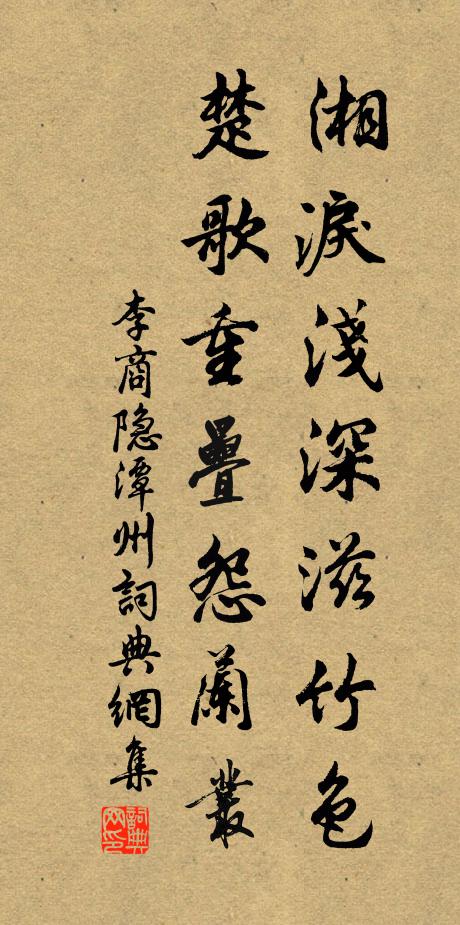 湘淚淺深滋竹色
楚歌重疊怨蘭叢
李商隐潭州詞典網集
詞典网印